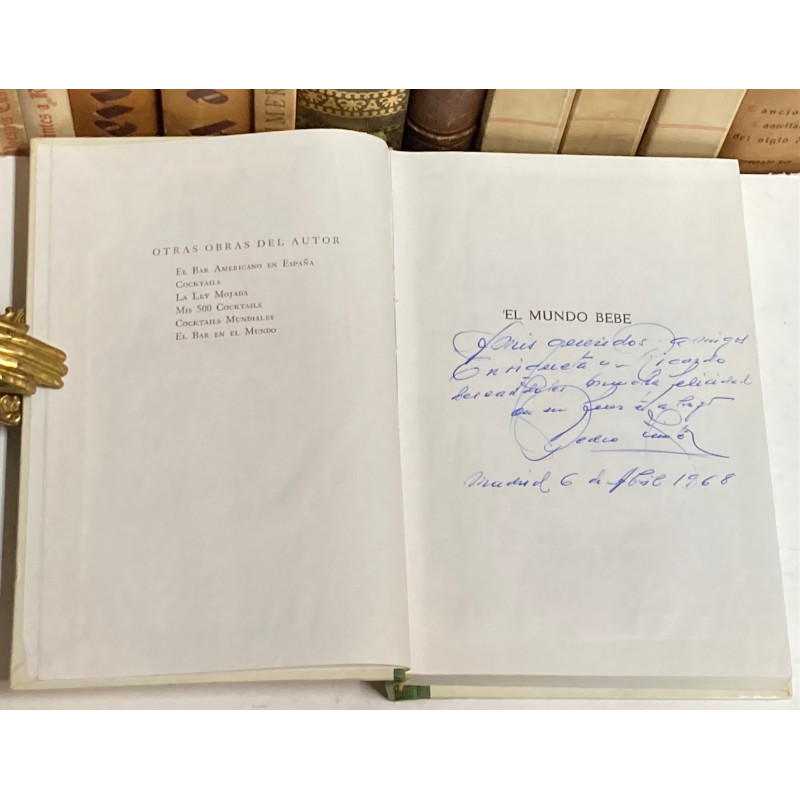 Cancio
Castilla
del siglo
OTRAS OBRAS DEL AUTOR
EL BAR AMERICANO EN ESPAÑA
COCKTAILS
LA LEY MOJADA
MIS 500 COCKTAILS
COCKTAILS MUNDIALES
EL BAR EN EL MUNDO
EL MUNDO BEBE
mis queridos amigos
Enriqueta y Ricardo
deseandoles mucha felicidad
en un
Pedro
Madrid 6 de Abril 1968